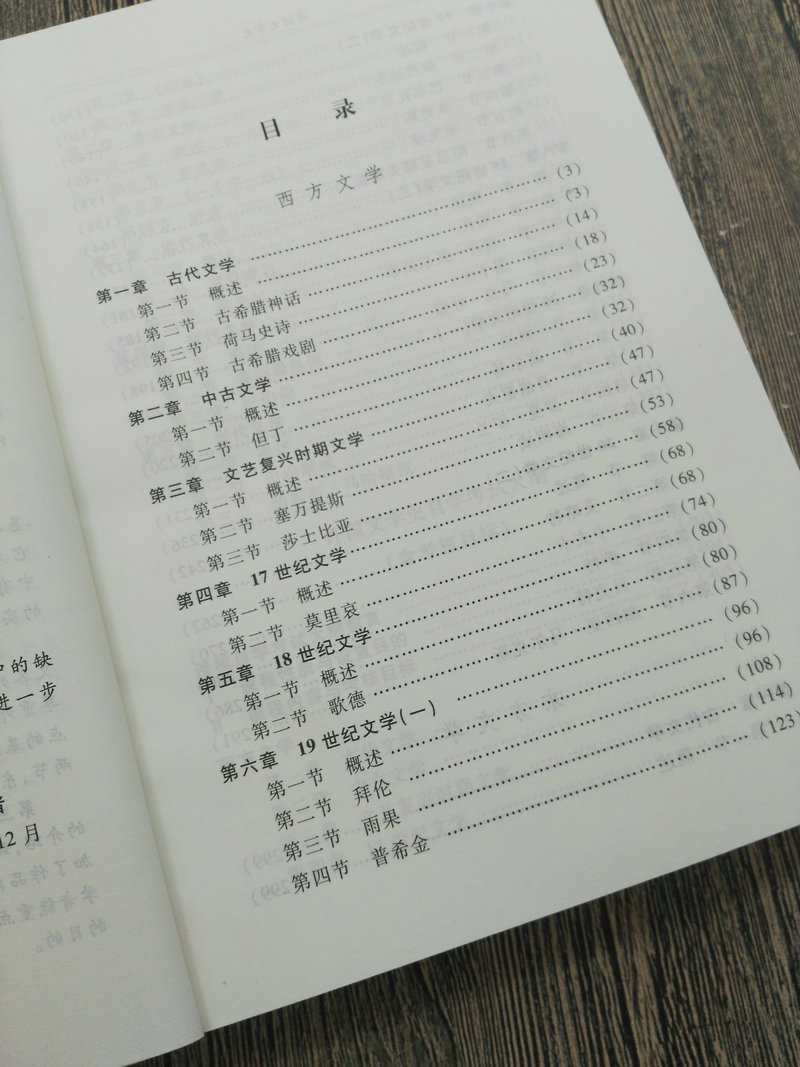 目 录
西方文学
第一章 古代文学 ……………………………… (3)
第一节 概述 ……………………………… (3)
第二节 古希腊神话 ……………………………… (14)
第三节 荷马史诗 ……………………………… (18)
第四节 古希腊戏剧 ……………………………… (23)
第二章 中古文学 ……………………………… (32)
第一节 概述 ……………………………… (32)
第二节 但丁 ……………………………… (40)
第三章 文艺复兴时期文学 ……………………………… (47)
第一节 概述 ……………………………… (47)
第二节 塞万提斯 ……………………………… (53)
第三节 莎士比亚 ……………………………… (58)
第四章 17世纪文学 ……………………………… (68)
第一节 概述 ……………………………… (68)
第二节 莫里哀 ……………………………… (74)
第五章 18世纪文学 ……………………………… (80)
第一节 概述 ……………………………… (80)
第二节 歌德 ……………………………… (87)
第六章 19世纪文学(一) ……………………………… (96)
第一节 概述 ……………………………… (96)
第二节 拜伦 ……………………………… (108)
第三节 雨果 ……………………………… (114)
第四节 普希金 ……………………………… (123)
的缺
进一步
12月